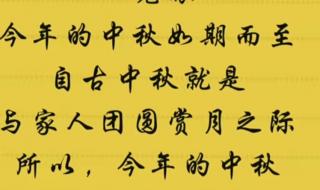 今年的中秋如期而至
自古中秋就是
与家人团圆赏月之际
所以，今年的中秋